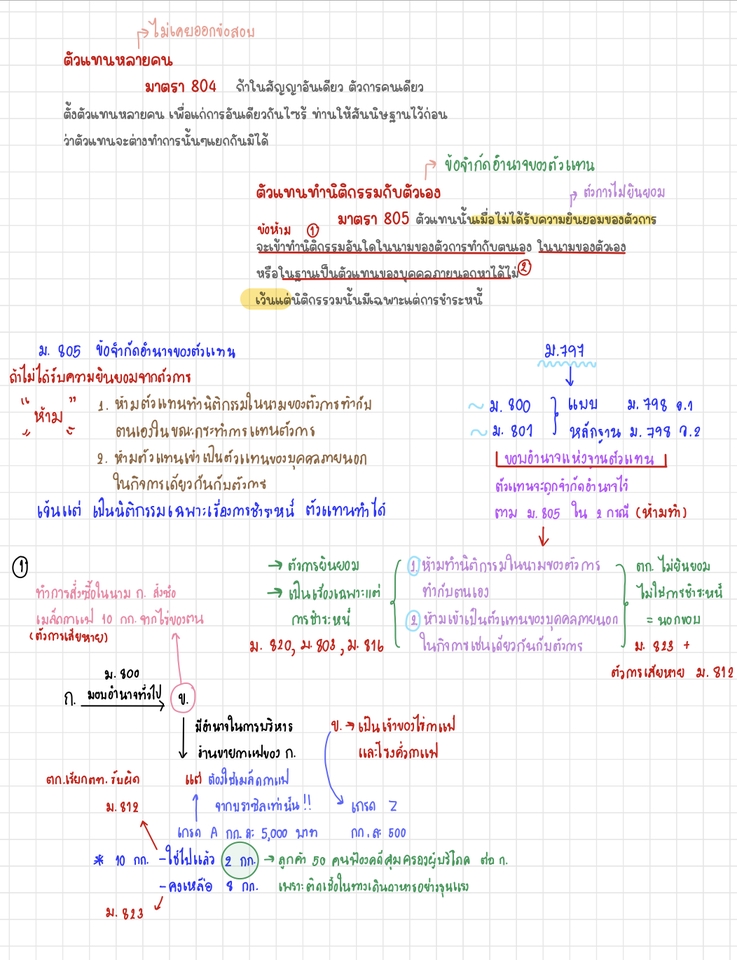 ไม่เคยออกข้อสอบ
ตัวแทนหลายคน
มาตรา 804 ถ้าในสัญญาอันเดียว ตัวการคนเดียว
ตั้งตัวแทนหลายคน เพื่อแก่การอันเดียวกันไซร้ ท่านให้สันนิษฐานไว้ก่อน
ว่าตัวแทนจะต่างทำการนั้นๆแยกกันมิได้
ข้อจำกัดอำนาจของตัวแทน
ตัวแทนทำนิติกรรมกับตัวเอง
ตัวการไม่ยินยอม
มาตรา 805 ตัวแทนนั้นเมื่อไม่ได้รับความยินยอมของตัวการ
ข้อห้าม ①
จะเข้าทำนิติกรรมอันใดในนามของตัวการทำกับตนเอง ในนามของตัวเอง
หรือในฐานเป็นตัวแทนของบุคคลภายนอกหาได้ไม่ ②
เว้นแต่นิติกรรมนั้นมีเฉพาะแต่การชำระหนี้
ม. 805 ข้อจำกัดอำนาจของตัวแทน
ถ้าไม่ได้รับความยินยอมจากตัวการ
"ห้าม"
1. ห้ามตัวแทนทำนิติกรรมในนามของตัวการทำกับ
ตนเองในขณะกระทำการแทนตัวการ
2. ห้ามตัวแทนเข้าเป็นตัวแทนของบุคคลภายนอก
ในกิจการเดียวกันกับตัวการ
เว้นแต่ เป็นนิติกรรมเฉพาะเรื่องการชำระหนี้ ตัวแทนทำได้
ม.797
~ ม. 800
~ ม. 801
แบบ ม. 798 ว.1
หลักฐาน ม. 798 ว.2
ขอบอำนาจแห่งฐานตัวแทน
ตัวแทนจะถูกจำกัดอำนาจไว้
ตาม ม.805 ใน 2 กรณี (ห้ามทำ)
①
ทำการสั่งซื้อในนาม ก. สั่งซื้อ
เมล็ดกาแฟ 10 กก. จากไร่ของตน
(ตัวการเสียหาย)
→ ตัวการยินยอม
→ เป็นเรื่องเฉพาะแต่
การชำระหนี้
ม. 820, ม. 803, ม. 816
① ห้ามทำนิติกรรมในนามของตัวการ
ทำกับตนเอง
② ห้ามเข้าเป็นตัวแทนของบุคคลภายนอก
ในกิจการเช่นเดียวกันกับตัวการ
ตก. ไม่ยินยอม
ไม่ใช่การชำระหนี้
= นอกขอบ
ม. 823 +
ตัวการเสียหาย ม. 812
ม. 800
ก. มอบอำนาจทั่วไป ข.
มีอำนาจในการบริหาร
ร้านขายกาแฟของ ก.
ข. → เป็นเจ้าของไร่กาแฟ
และโรงคั่วกาแฟ
ตก.เรียกตท. รับผิด
ม. 812
แต่ ต้องใช้เมล็ดกาแฟ
จากบราซิลเท่านั้น!!
เกรด A กก. ละ 5,000 บาท
เกรด Z
กก. ละ 500
* 10 กก. - ใช้ไปแล้ว 2 กก. → ลูกค้า 50 คนฟ้องคดีคุ้มครองผู้บริโภค ต่อ ก.
- คงเหลือ 8 กก. เพราะติดเชื้อในทางเดินอาหารอย่างรุนแรง
ม. 823